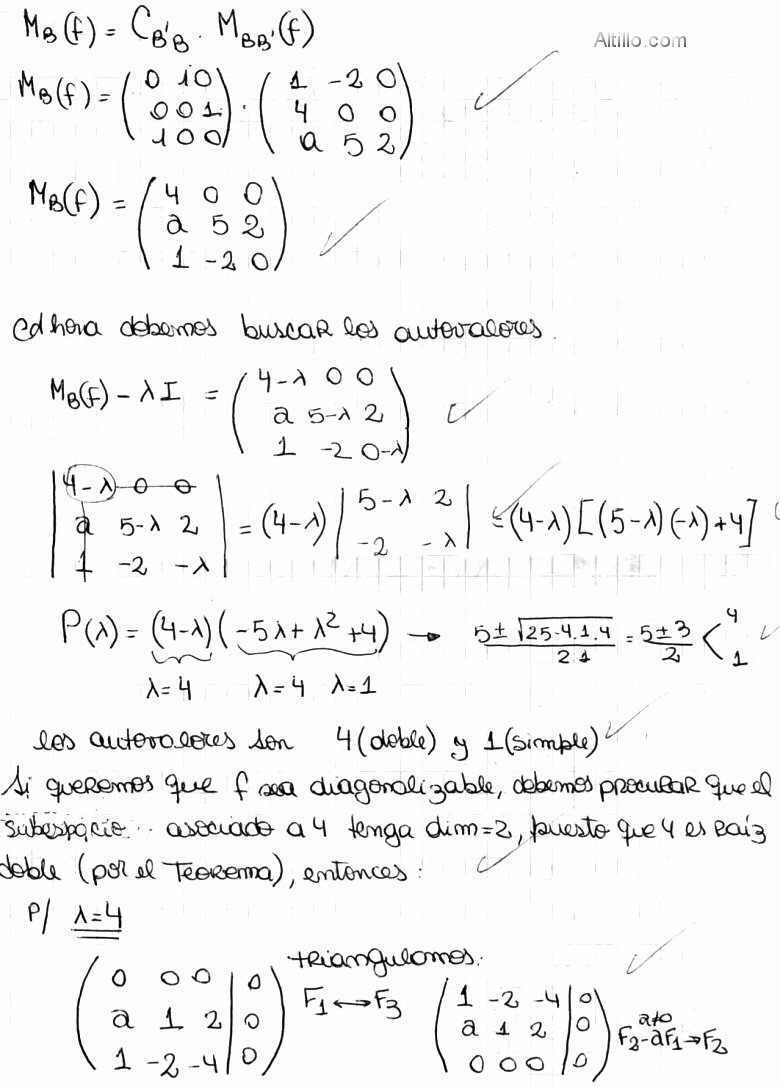 M_B(f) = C_B'B · M_BB'(f)
Altillo.com
M_B(f) = ( 0 1 0 ; 0 0 1 ; 1 0 0 ) · ( 1 -2 0 ; 4 0 0 ; a 5 2 )
M_B(f) = ( 4 0 0 ; a 5 2 ; 1 -2 0 )
Ahora debemos buscar los autovalores.
M_B(f) - λI = ( 4-λ 0 0 ; a 5-λ 2 ; 1 -2 0-λ )
| 4-λ 0 0 ; a 5-λ 2 ; 1 -2 -λ | = (4-λ) | 5-λ 2 ; -2 -λ | = (4-λ) [(5-λ)(-λ)+4]
P(λ) = (4-λ)(-5λ + λ² + 4) → 5 ± √25-4.1.4 / 2.1 = 5±3 / 2 < 4 1
λ=4 λ=4 λ=1
los autovalores son 4 (doble) y 1 (simple)
Si queremos que f sea diagonalizable, debemos procurar que el
subespacio asociado a 4 tenga dim=2, puesto que 4 es raíz
doble (por el Teorema), entonces:
P/ λ=4
triangulamos.
( 0 0 0 | 0 ; a 1 2 | 0 ; 1 -2 -4 | 0 ) F₁ ↔ F₃ ( 1 -2 -4 | 0 ; a 1 2 | 0 ; 0 0 0 | 0 ) a≠0 F₂-aF₁→F₂